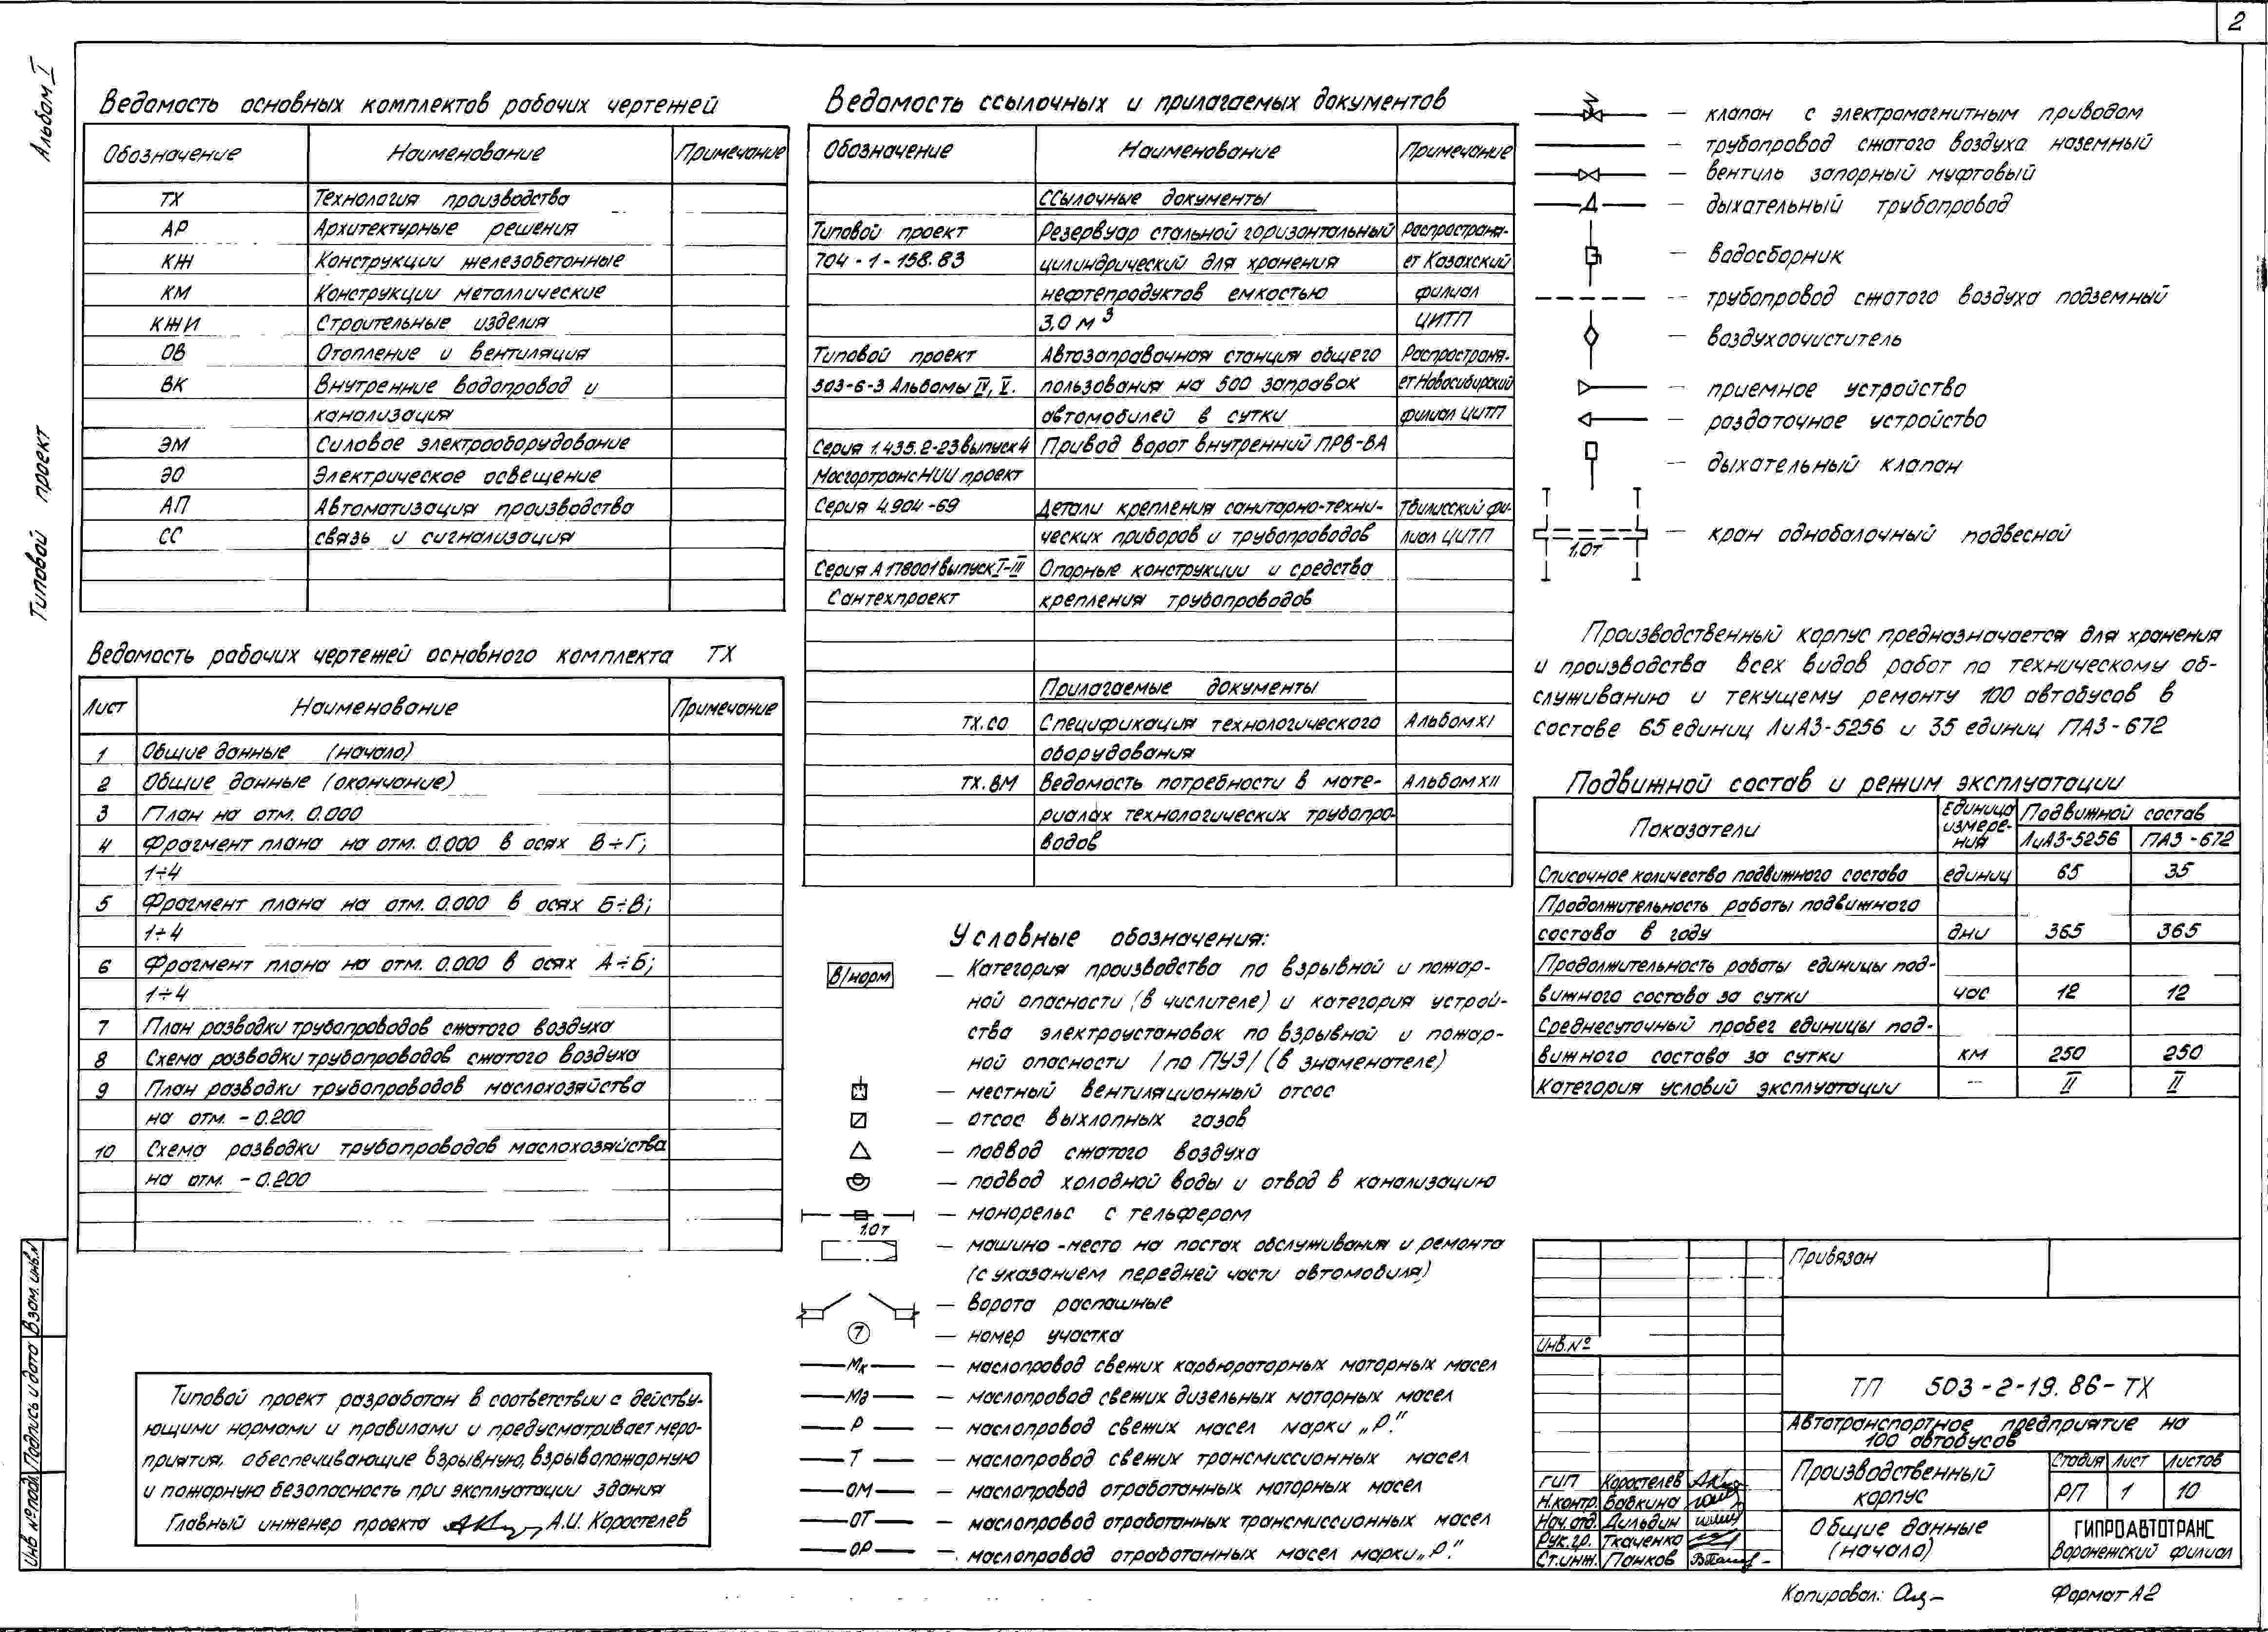 2
Альбом I
Типовой проект
Ведомость основных комплектов рабочих чертежей
Обозначение Наименование Примечание
ТХ Технология производства
АР Архитектурные решения
КЖ Конструкции железобетонные
КМ Конструкции металлические
КЖИ Строительные изделия
ОВ Отопление и вентиляция
ВК Внутренние водопровод и
канализация
ЭМ Силовое электрооборудование
ЭО Электрическое освещение
АП Автоматизация производства
СС связь и сигнализация
Ведомость рабочих чертежей основного комплекта ТХ
Лист Наименование Примечание
1 Общие данные (начало)
2 Общие данные (окончание)
3 План на отм. 0.000
4 Фрагмент плана на отм. 0.000 в осях В÷Г;
1÷4
5 Фрагмент плана на отм. 0.000 в осях Б÷В;
1÷4
6 Фрагмент плана на отм. 0.000 в осях А÷Б;
1÷4
7 План разводки трубопроводов сжатого воздуха
8 Схема разводки трубопроводов сжатого воздуха
9 План разводки трубопроводов маслохозяйства
на отм. -0.200
10 Схема разводки трубопроводов маслохозяйства
на отм. -0.200
Типовой проект разработан в соответствии с действу-
ющими нормами и правилами и предусматривает меро-
приятия, обеспечивающие взрывную, взрывопожарную
и пожарную безопасность при эксплуатации здания
Главный инженер проекта А.И. Коростелев
Взам. инв.№
Подпись и дата
Инв №подл
Ведомость ссылочных и прилагаемых документов
Обозначение Наименование Примечание
Ссылочные документы
Типовой проект Резервуар стальной горизонтальный Распространя-
704-1-158.83 цилиндрический для хранения ет Казахский
нефтепродуктов емкостью филиал
3,0 м³ ЦИТП
Типовой проект Автозаправочная станция общего Распространя-
503-6-3 Альбомы IV, V. пользования на 500 заправок ет Новосибирский
автомобилей в сутки филиал ЦИТП
Серия 1.435.2-23 выпуск 4 Привод ворот внутренний ПРВ-ВА
МосгортрансНИИпроект
Серия 4.904-69 Детали крепления санитарно-техни- Тбилисский фи-
ческих приборов и трубопроводов лиал ЦИТП
Серия А178001 выпуск I-III Опорные конструкции и средства
Сантехпроект крепления трубопроводов
Прилагаемые документы
ТХ.СО Спецификация технологического Альбом XI
оборудования
ТХ.ВМ Ведомость потребности в мате- Альбом XII
риалах технологических трубопро-
водов
Условные обозначения:
В/норм — Категория производства по взрывной и пожар-
ной опасности (в числителе) и категория устрой-
ства электроустановок по взрывной и пожар-
ной опасности /по ПУЭ/ (в знаменателе)
— местный вентиляционный отсос
— отсос выхлопных газов
— подвод сжатого воздуха
— подвод холодной воды и отвод в канализацию
— монорельс с тельфером
1,0т
— машино-место на постах обслуживания и ремонта
(с указанием передней части автомобиля)
— ворота распашные
7 — номер участка
Мк — маслопровод свежих карбюраторных моторных масел
Мд — маслопровод свежих дизельных моторных масел
Р — маслопровод свежих масел марки „Р."
Т — маслопровод свежих трансмиссионных масел
ОМ — маслопровод отработанных моторных масел
ОТ — маслопровод отработанных трансмиссионных масел
ОР — маслопровод отработанных масел марки „Р."
— клапан с электромагнитным приводом
— трубопровод сжатого воздуха наземный
— вентиль запорный муфтовый
Д — дыхательный трубопровод
— водосборник
— трубопровод сжатого воздуха подземный
— воздухоочиститель
— приемное устройство
— раздаточное устройство
— дыхательный клапан
— кран однобалочный подвесной
1,0т
Производственный корпус предназначается для хранения
и производства всех видов работ по техническому об-
служиванию и текущему ремонту 100 автобусов в
составе 65 единиц ЛиАЗ-5256 и 35 единиц ПАЗ-672
Подвижной состав и режим эксплуатации
Показатели Единица измере-ния Подвижной состав
ЛиАЗ-5256 ПАЗ-672
Списочное количество подвижного состава единиц 65 35
Продолжительность работы подвижного
состава в году дни 365 365
Продолжительность работы единицы под-
вижного состава за сутки час 12 12
Среднесуточный пробег единицы под-
вижного состава за сутки км 250 250
Категория условий эксплуатации — II II
Привязан
Инв.№
ТП 503-2-19.86-ТХ
Автотранспортное предприятие на
100 автобусов
Производственный
корпус
Стадия Лист Листов
РП 1 10
Общие данные
(начало)
ГИПРОАВТОТРАНС
Воронежский филиал
ГИП Коростелев
Н.контр. Бавкина
Нач.отд. Дильдин
Рук.гр. Ткаченко
Ст.инж. Панков
Копировал: Формат А2